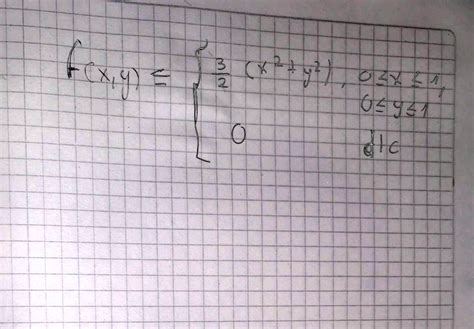 f(x,y) = { 3/2 (x²+y²), 0≤x≤1,
0≤y≤1
0 d|c